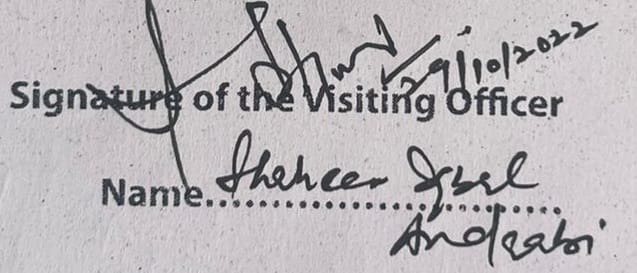 29/10/2022
Signature of the Visiting Officer
Name.. Shaheen Iqbal
Andrabi